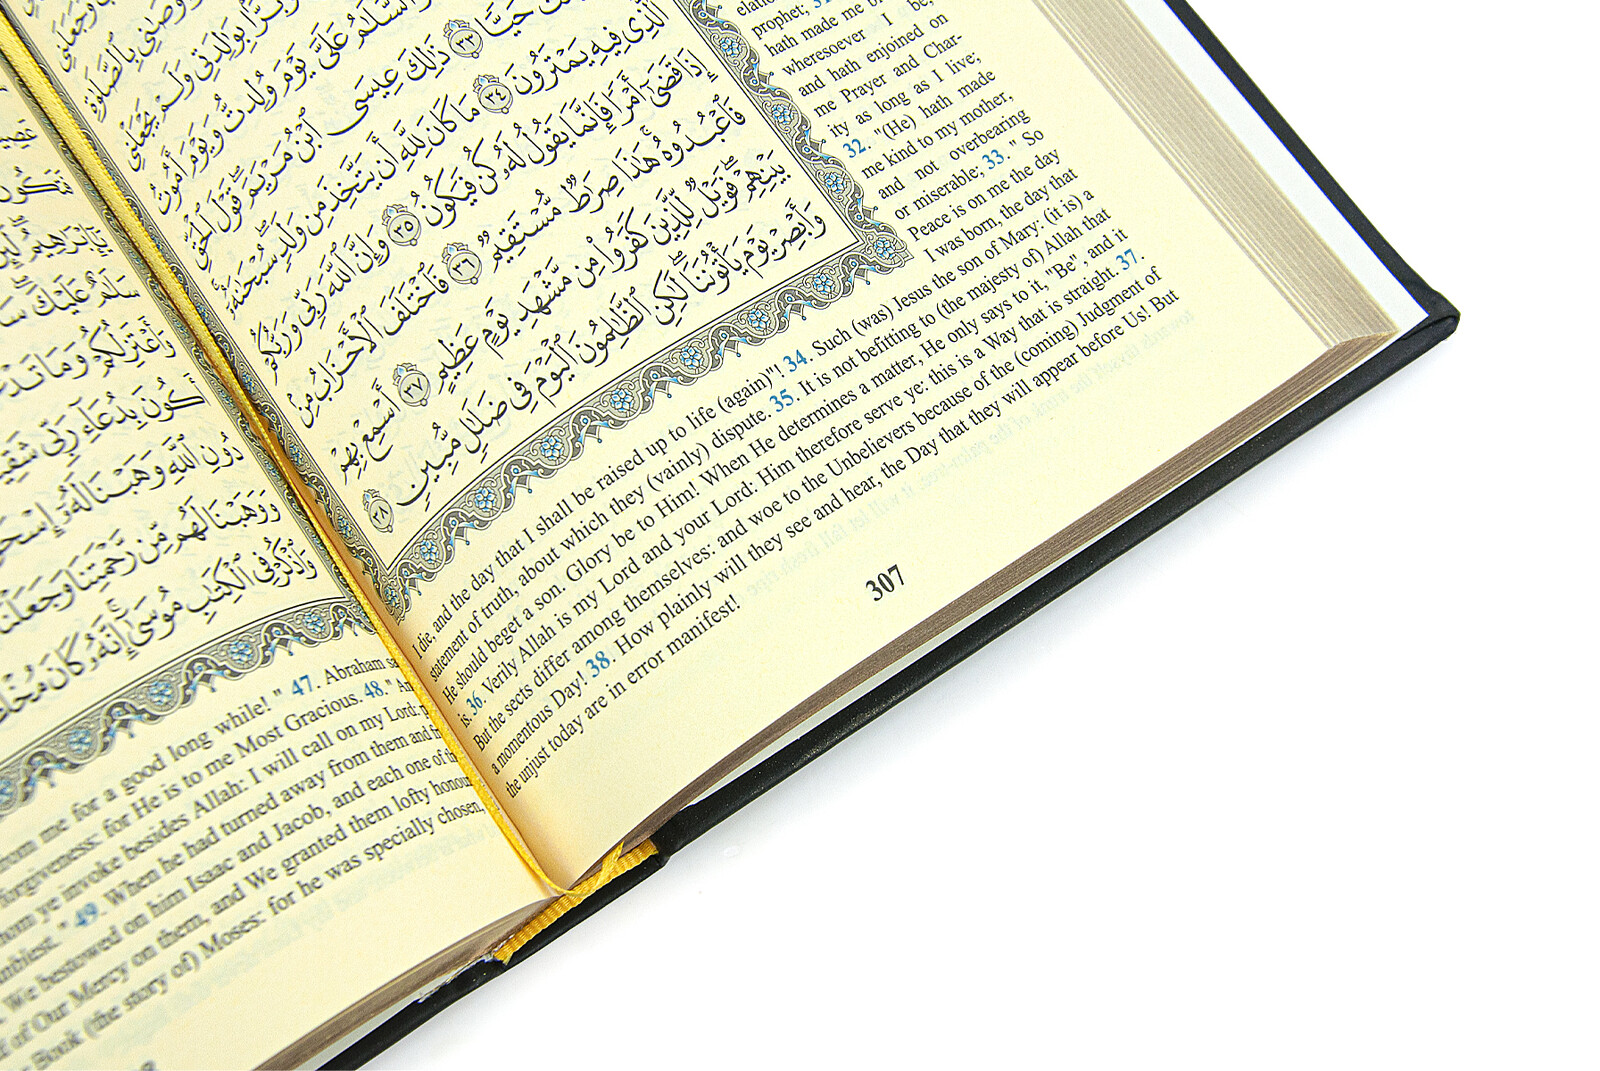 وَجَعَلَنِى
وَأَوْصَٰنِى بِٱلصَّلَوٰةِ
بَرًّۢا بِوَٰلِدَتِى وَلَمْ يَجْعَلْنِى
وَٱلسَّلَٰمُ عَلَىَّ يَوْمَ وُلِدتُّ وَيَوْمَ أَمُوتُ
حَيًّا ٣٣ ذَٰلِكَ عِيسَى ٱبْنُ مَرْيَمَ ۚ قَوْلَ ٱلْحَقِّ
ٱلَّذِى فِيهِ يَمْتَرُونَ ٣٤ مَا كَانَ لِلَّهِ أَن يَتَّخِذَ مِن وَلَدٍ ۖ سُبْحَٰنَهُۥٓ ۚ
إِذَا قَضَىٰٓ أَمْرًا فَإِنَّمَا يَقُولُ لَهُۥ كُن فَيَكُونُ ٣٥ وَإِنَّ ٱللَّهَ رَبِّى وَرَبُّكُمْ
فَٱعْبُدُوهُ ۚ هَٰذَا صِرَٰطٌ مُّسْتَقِيمٌ ٣٦ فَٱخْتَلَفَ ٱلْأَحْزَابُ مِنۢ
بَيْنِهِمْ ۖ فَوَيْلٌ لِّلَّذِينَ كَفَرُوا۟ مِن مَّشْهَدِ يَوْمٍ عَظِيمٍ ٣٧ أَسْمِعْ بِهِمْ
وَأَبْصِرْ يَوْمَ يَأْتُونَنَا ۖ لَٰكِنِ ٱلظَّٰلِمُونَ ٱلْيَوْمَ فِى ضَلَٰلٍ مُّبِينٍ ٣٨
prophet; 31
hath made me
wheresoever I be,
and hath enjoined on
me Prayer and Char-
ity as long as I live;
32. "(He) hath made
me kind to my mother,
and not overbearing
or miserable; 33. " So
Peace is on me the day
I was born, the day that
I die, and the day that I shall be raised up to life (again)"! 34. Such (was) Jesus the son of Mary: (it is) a
statement of truth, about which they (vainly) dispute. 35. It is not befitting to (the majesty of) Allah that
He should beget a son. Glory be to Him! When He determines a matter, He only says to it, "Be", and it
is. 36. Verily Allah is my Lord and your Lord: Him therefore serve ye: this is a Way that is straight. 37.
But the sects differ among themselves: and woe to the Unbelievers because of the (coming) Judgment of
a momentous Day! 38. How plainly will they see and hear, the Day that they will appear before Us! But
the unjust today are in error manifest!
307
فَتَكُونَ
يَٰٓإِبْرَٰهِيمُ لَئِن
سَلَٰمٌ عَلَيْكَ
وَأَعْتَزِلُكُمْ وَمَا تَدْعُونَ
أَكُونَ بِدُعَآءِ رَبِّى شَقِيًّا
دُونِ ٱللَّهِ وَهَبْنَا لَهُۥٓ إِسْحَٰقَ
وَوَهَبْنَا لَهُم مِّن رَّحْمَتِنَا وَجَعَلْنَا
وَٱذْكُرْ فِى ٱلْكِتَٰبِ مُوسَىٰٓ ۚ إِنَّهُۥ كَانَ مُخْلَصًا
from me for a good long while! " 47. Abraham
forgiveness: for He is to me Most Gracious. 48."
whom ye invoke besides Allah: I will call on my Lord:
49. When he had turned away from them and
We bestowed on him Isaac and Jacob, and each one of
of Our Mercy on them, and We granted them lofty
Book (the story of) Moses: for he was specially chosen,